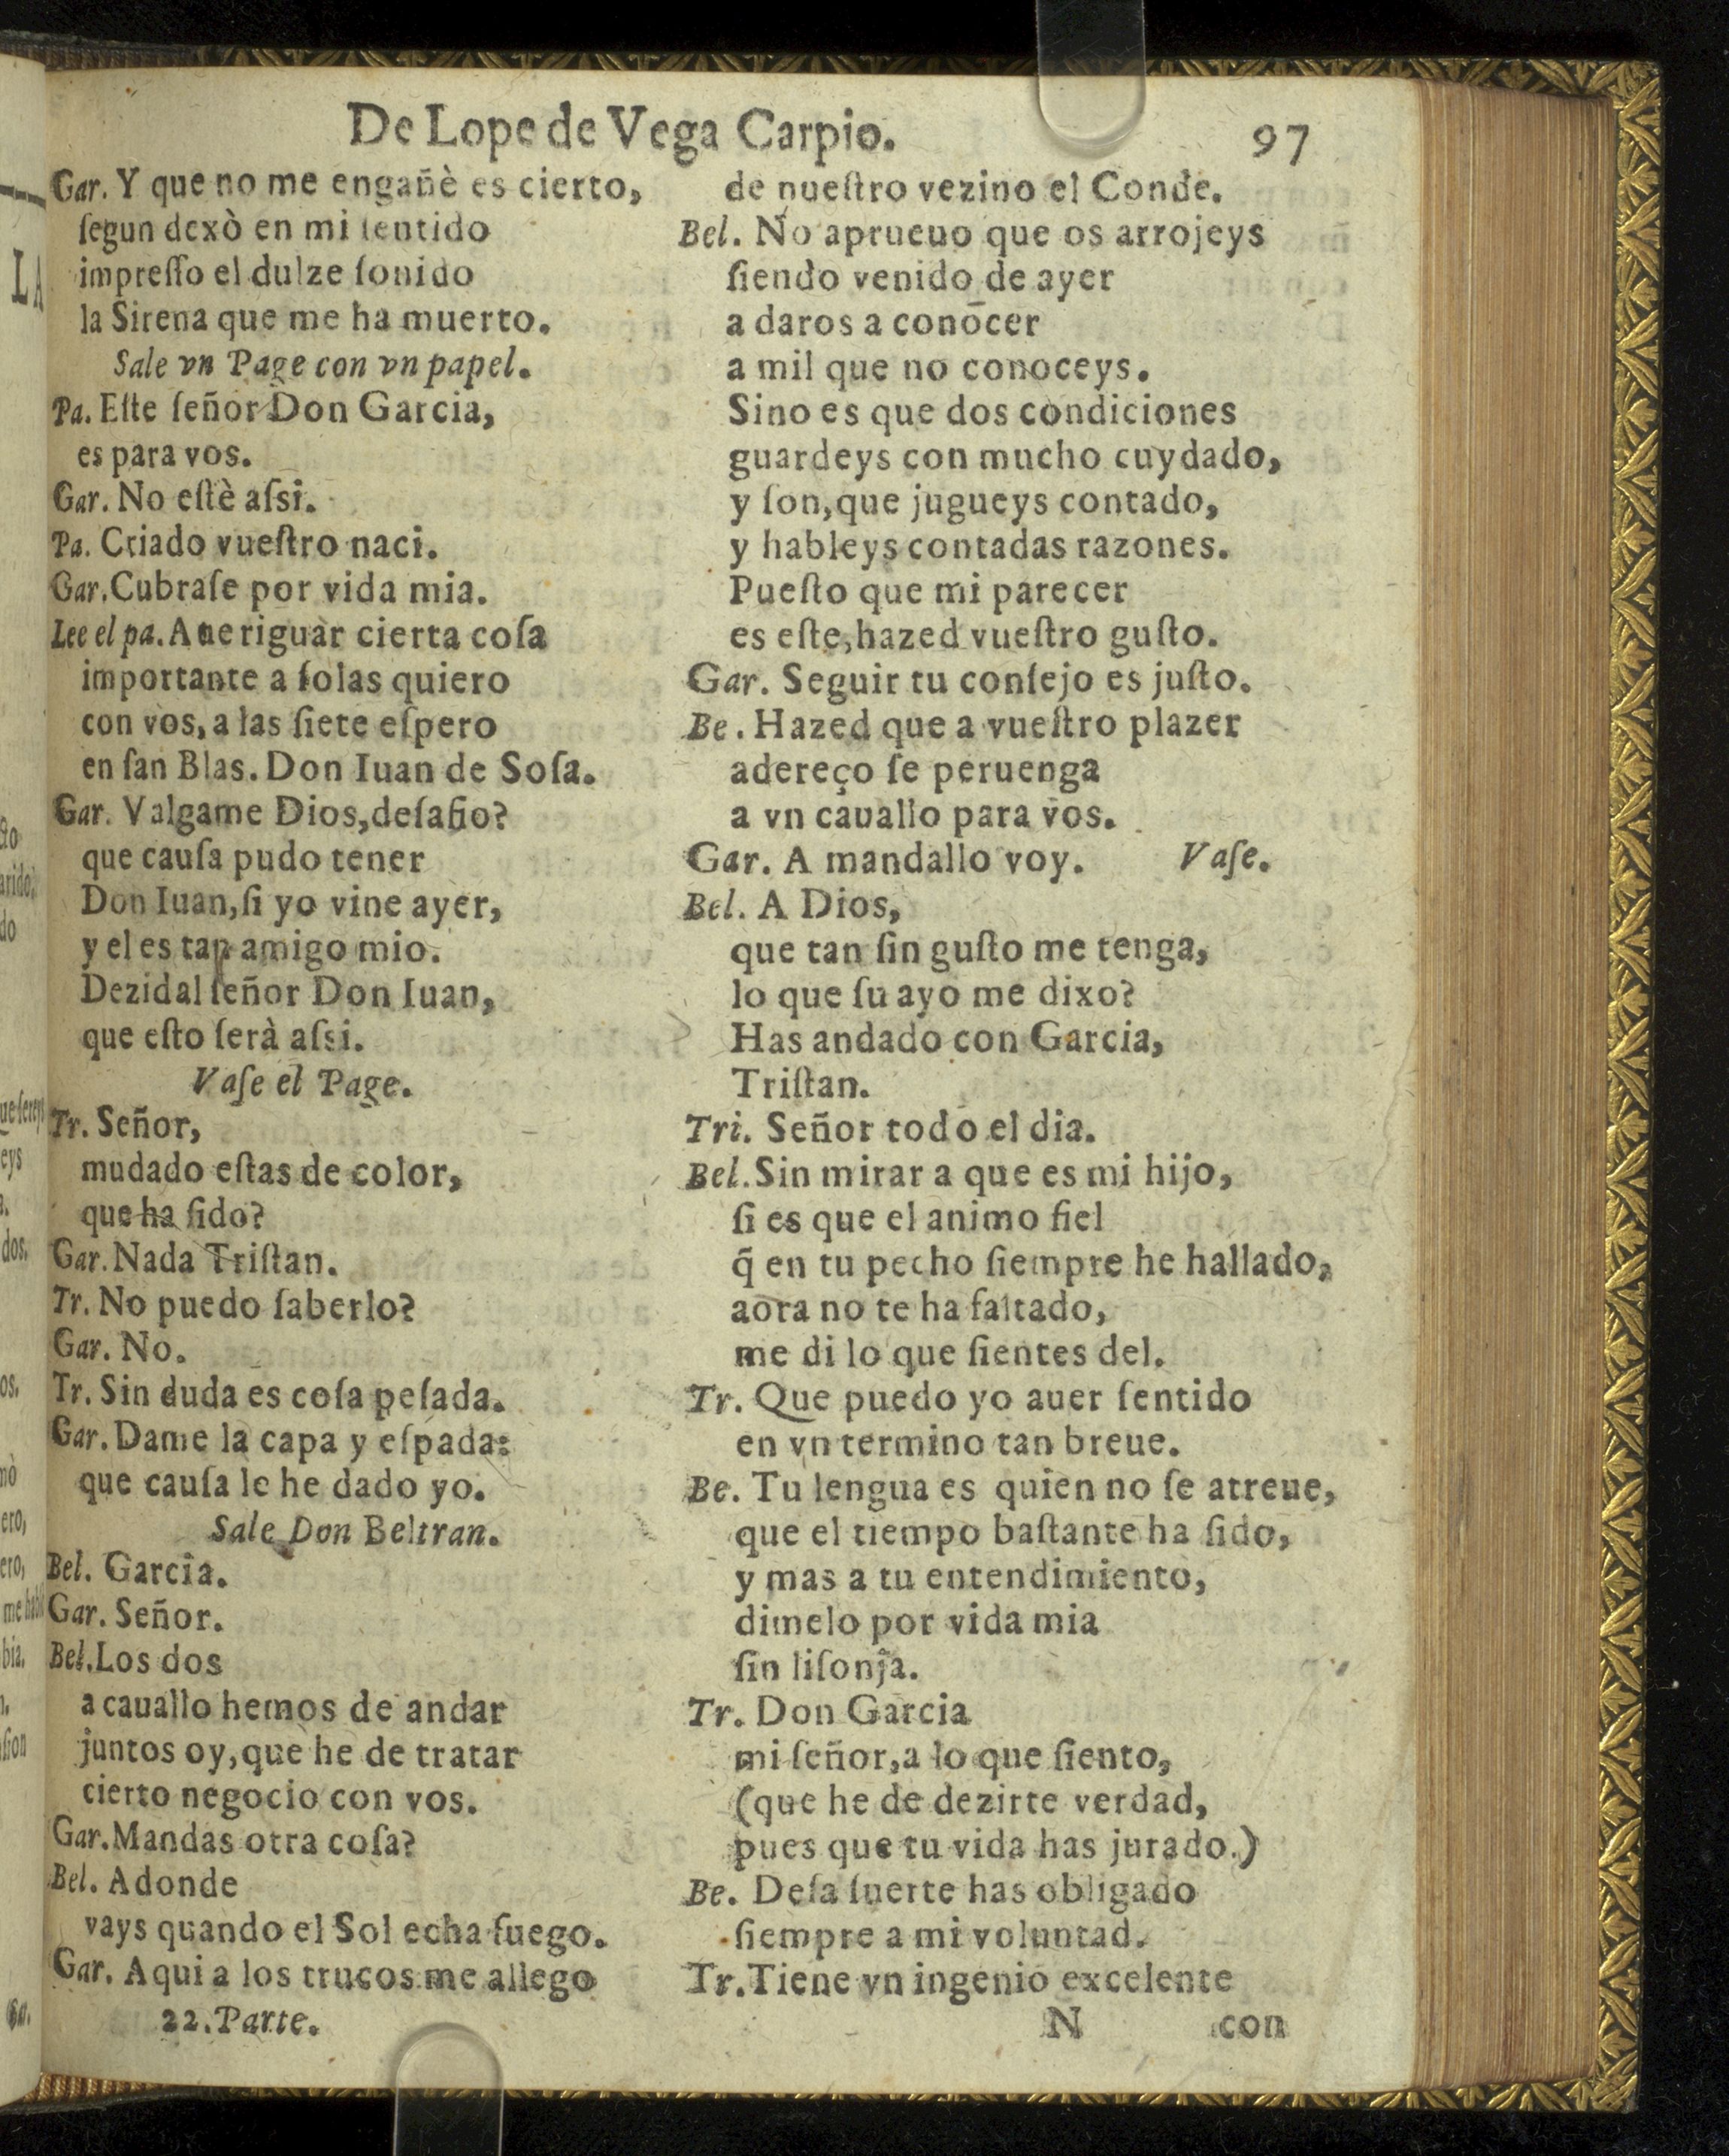 De Lope de Vega Carpio. 97
Gar. Y que no me engañè es cierto,
ſegun dexò en mi ſentido
impreſſo el dulze ſonido
la Sirena que me ha muerto.
Sale vn Page con vn papel.
Pa. Eſte ſeñor Don Garcia,
es para vos.
Gar. No eſtè aſsi.
Pa. Criado vueſtro naci.
Gar. Cubraſe por vida mia.
Lee el pa. Aueriguar cierta coſa
importante a ſolas quiero
con vos, a las ſiete eſpero
en ſan Blas. Don Iuan de Soſa.
Gar. Valgame Dios, deſafio?
que cauſa pudo tener
Don Iuan, ſi yo vine ayer,
y el es tan amigo mio.
Dezid al ſeñor Don Iuan,
que eſto ſerà aſsi.
Vaſe el Page.
Tr. Señor,
mudado eſtas de color,
que ha ſido?
Gar. Nada Triſtan.
Tr. No puedo ſaberlo?
Gar. No.
Tr. Sin duda es coſa peſada.
Gar. Dame la capa y eſpada:
que cauſa le he dado yo.
Sale Don Beltran.
Bel. Garcia.
Gar. Señor.
Bel. Los dos
a cauallo hemos de andar
juntos oy, que he de tratar
cierto negocio con vos.
Gar. Mandas otra coſa?
Bel. Adonde
vays quando el Sol echa fuego.
Gar. Aqui a los trucos me allego
22. Parte.
de nueſtro vezino el Conde.
Bel. No aprueuo que os arrojeys
ſiendo venido de ayer
a daros a conocer
a mil que no conoceys.
Sino es que dos condiciones
guardeys con mucho cuydado,
y ſon, que jugueys contado,
y hableys contadas razones.
Pueſto que mi parecer
es eſte, hazed vueſtro guſto.
Gar. Seguir tu conſejo es juſto.
Be. Hazed que a vueſtro plazer
adereço ſe peruenga
a vn cauallo para vos.
Gar. A mandallo voy. Vaſe.
Bel. A Dios,
que tan ſin guſto me tenga,
lo que ſu ayo me dixo?
Has andado con Garcia,
Triſtan.
Tri. Señor todo el dia.
Bel. Sin mirar a que es mi hijo,
ſi es que el animo fiel
q̃ en tu pecho ſiempre he hallado,
aora no te ha faltado,
me di lo que ſientes del.
Tr. Que puedo yo auer ſentido
en vn termino tan breue.
Be. Tu lengua es quien no ſe atreue,
que el tiempo baſtante ha ſido,
y mas a tu entendimiento,
dimelo por vida mia
ſin liſonja.
Tr. Don Garcia
mi ſeñor, a lo que ſiento,
(que he de dezirte verdad,
pues que tu vida has jurado.)
Be. Deſa ſuerte has obligado
ſiempre a mi voluntad.
Tr. Tiene vn ingenio excelente
N con